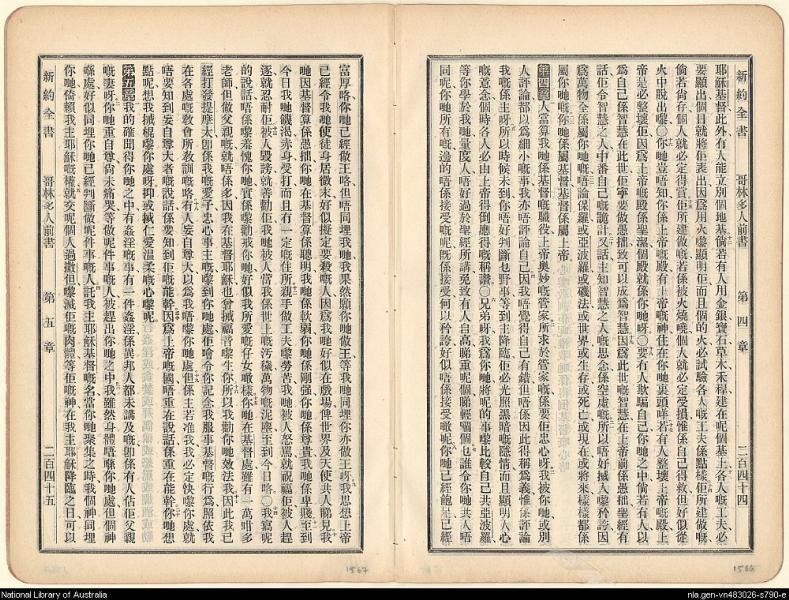 新約全書 哥林多人前書 第四章 二百四十四
耶穌基督此外有人能立別個地基倘若有人用金銀寶石草木禾稈建在呢個基上各人嘅工夫必
要顯出個日就將佢表出因爲用火嚟顯明佢而且個的火必試驗各人嘅工夫係點樣佢所建做嘅
倘若尙存個人就必定得賞佢所建做嘅若係被火燒曉個人就必定受損惟係自己得救但好似從
火中脫出嚟〇你哋豈唔知你係上帝嘅殿有上帝嘅神住在你哋裏頭咩若有人整壞上帝嘅殿上
帝是必整壞佢因爲上帝嘅殿係聖潔個殿就係你哋呀〇要有人欺騙自己你哋之中倘若有人以
爲自己係智慧在此世佢寧要做愚拙致可以成爲智慧因爲此世嘅智慧在上帝前係愚拙聖經有
話佢令智慧之人中番自己嘅詭計又話主知智慧之人嘅思念係空虛嘅所以唔好搣人嚟矜誇因
爲萬物全係屬你哋嘅唔論保羅或亞波羅或磯法或世界或生存或死亡或現在或將來樣樣都係
屬你哋嘅你哋係屬基督基督係屬上帝
第四章人當算我哋係基督嘅職役上帝奧妙嘅管家所求於管家嘅係要佢忠心呀我被你哋或別
人評論都以爲細小嘅事我亦唔評論自己因我唔覺得自己有錯但唔係因此得稱爲義惟係評論
我嘅係主呀所以時候未到你唔好判斷乜野事等到主降臨佢必光照黑暗嘅隱情而且顯明人心
嘅意念個時各人必由上帝得倒應得嘅稱讚〇兄弟呀我爲你哋將呢的事嚟比較自己共亞波羅
等你學於我哋量度人唔好過於聖經所講免致有人自高睇重呢個睇輕嗰個乜誰令你哋共人唔
同呢你哋所有嘅邊的唔係接受嘅呢旣係接受何以矜誇好似唔係接受嘅呢你哋已經飽足已經
富厚咯你哋已經做王咯但唔同埋我哋我果然願你哋做王等我哋同埋你亦做王呀我思想上帝
已經令我哋使徒身居微末好似擬定要殺嘅人因爲我哋好似在戲場俾世界及天使共人睇見我
哋因基督算係愚拙你哋在基督算係聰明我哋係軟弱你哋係剛強你哋係尊貴我哋係卑賤至到
今日我哋饑渴赤身受打而且有一定嘅住所親手做工夫嚟勞苦我哋被人怒罵就祝福佢被人趕
逐就忍耐佢被人毀謗就善勸佢我哋被人當我係世上嘅汚穢萬物嘅泥塵至到今日咯〇我寫呢
的說話唔係嚟羞愧你哋實係嚟勸戒你哋好似我所愛嘅仔女噉樣你哋在基督處雖有一萬咁多
老師但做父親嘅就唔係多因我在基督耶穌也曾搣福音嚟生你所以我勸你哋效法我因此我已
經打發提摩太卽係我嘅愛子忠心事主嘅嚟到你哋處佢噲令你記念我服事基督嘅行爲照依我
在各處嘅敎會所敎訓嘅咯有人妄自尊大以爲我唔嚟你哋處但係主若准我我必定快嚟你處就
唔要知到妄自尊大者嘅說話係要知到佢嘅能幹因爲上帝嘅國唔重在說話係重在能幹你哋想
點呢想我搣棍嚟你處呀抑或搣仁愛溫柔嘅心嚟呢
第五章我的確聞得你哋之中有姦淫嘅事有一件姦淫係異邦人都未講及嘅卽係有人佔佢父親
嘅妻呀你哋重自尊尙未痛哭等做呢件事嘅人被趕出你哋之中我雖然身體唔喺你哋處但個神
喺處好似同埋你哋已經判斷做呢件事嘅人託我主耶穌基督嘅名當你哋聚集之時我個神同埋
你哋倚賴我主耶穌嘅權就交呢個人過撒但嚟滅佢嘅肉體等佢嘅神在我主耶穌降臨之日可以
新約全書 哥林多人前書 第五章 二百四十五
1567
1566
National Library of Australia
nla.gen-vn483026-s790-e